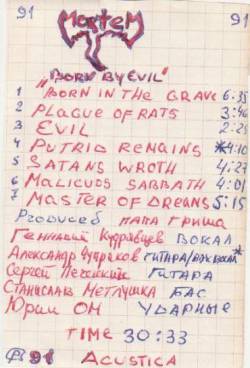 91 91
MorteM
"BORN BY EVIL"
1 "BORN IN THE GRAVE 6:35
2 PLAGUE OF RATS 3:46
3 EVIL 2:26
4 PUTRID REMAINS 4:10
5 SATANS WROTH 4:27
6 MALICUOS SABBATH 4:01
7 MASTER OF DREAMS 5:15
PRODUCED ПАПА ГРИША
ГЕННАДИЙ КУДРЯВЦЕВ ВОКАЛ
АЛЕКСАНДР ЧУПРАКОВ ГИТАРА/ВЭК ВОКАЛ*
СЕРГЕЙ ГИТАРА
СТАНИСЛАВ МЕТЛУШКА БАС
ЮРИЙ ОМ УДАРНЫЕ
TIME 30:33
91 ACUSTICA